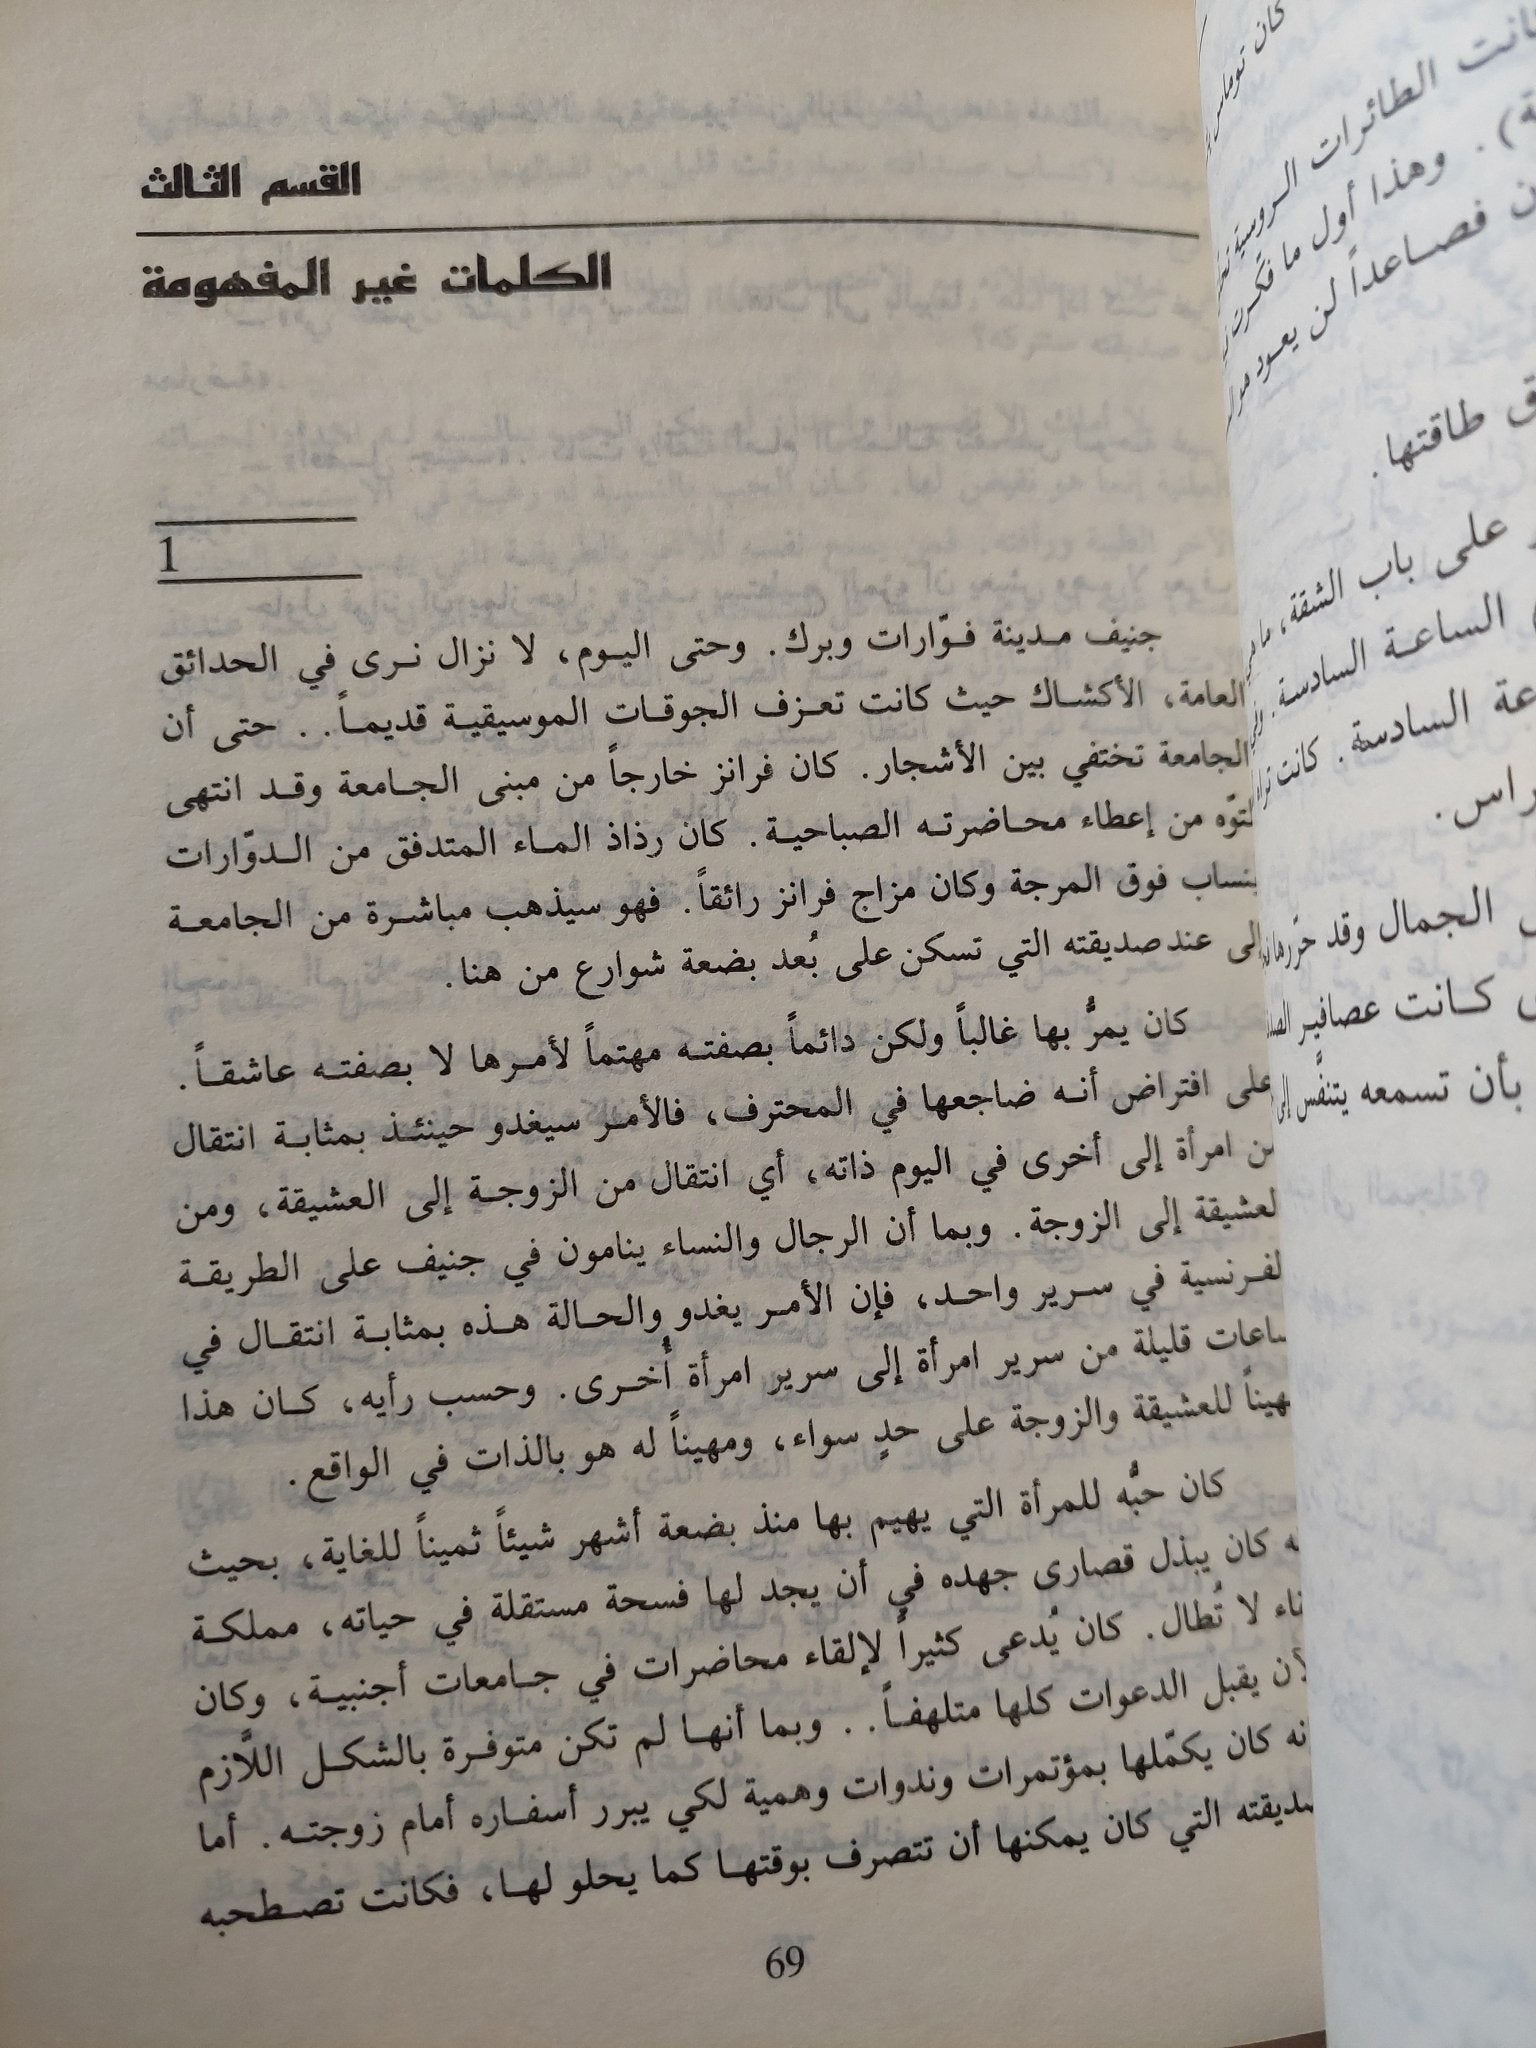 القسم الثالث
الكلمات غير المفهومة
1
جنيف مدينة فوّارات وبرك. وحتى اليوم، لا نزال نرى في الحدائق
العامة، الأكشاك حيث كانت تعزف الجوقات الموسيقية قديماً.. حتى أن
الجامعة تختفي بين الأشجار. كان فرانز خارجاً من مبنى الجامعة وقد انتهى
لتوّه من إعطاء محاضرته الصباحية. كان رذاذ الماء المتدفق من الدوّارات
ينساب فوق المرجة وكان مزاج فرانز رائقاً. فهو سيذهب مباشرة من الجامعة
إلى عند صديقته التي تسكن على بُعد بضعة شوارع من هنا.
كان يمرُّ بها غالباً ولكن دائماً بصفته مهتماً لأمرها لا بصفته عاشقاً.
على افتراض أنه ضاجعها في المحترف، فالأمر سيغدو حينئذ بمثابة انتقال
من امرأة إلى أخرى في اليوم ذاته، أي انتقال من الزوجة إلى العشيقة، ومن
العشيقة إلى الزوجة. وبما أن الرجال والنساء ينامون في جنيف على الطريقة
الفرنسية في سرير واحد، فإن الأمر يغدو والحالة هذه بمثابة انتقال في
ساعات قليلة من سرير امرأة إلى سرير امرأة أُخرى. وحسب رأيه، كان هذا
مهيناً للعشيقة والزوجة على حدٍ سواء، ومهيناً له هو بالذات في الواقع.
كان حبُّه للمرأة التي يهيم بها منذ بضعة أشهر شيئاً ثميناً للغاية، بحيث
كان يبذل قصارى جهده في أن يجد لها فسحة مستقلة في حياته، مملكة
لا تُطال. كان يُدعى كثيراً لإلقاء محاضرات في جامعات أجنبية، وكان
الآن يقبل الدعوات كلها متلهفاً.. وبما أنها لم تكن متوفرة بالشكل اللَّازم
كان يكمّلها بمؤتمرات وندوات وهمية لكي يبرر أسفاره أمام زوجته. أما
صديقته التي كان يمكنها أن تتصرف بوقتها كما يحلو لها، فكانت تصطحبه
69
كان توماس
الطائرات الروسية
وهذا أول ما فكّرت
فصاعداً لن يعود
طاقتها.
على باب الشقة،
الساعة السادسة.
السادسة. كانت
الجمال وقد حرّرها
كانت عصافير
بأن تسمعه يتنفَّس